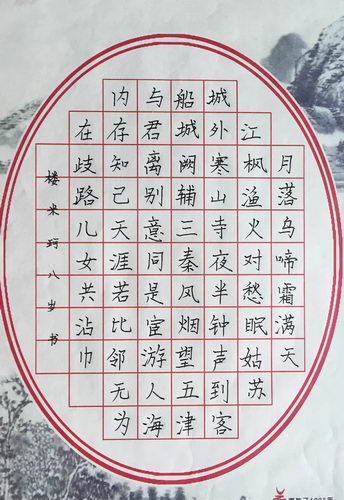 月落乌啼霜满天
江枫渔火对愁眠姑苏
城外寒山寺夜半钟声到客
船城阙辅三秦风烟望五津
与君离别意同是宦游人海
内存知己天涯若比邻无为
在歧路儿女共沾巾
楼米珂八岁书